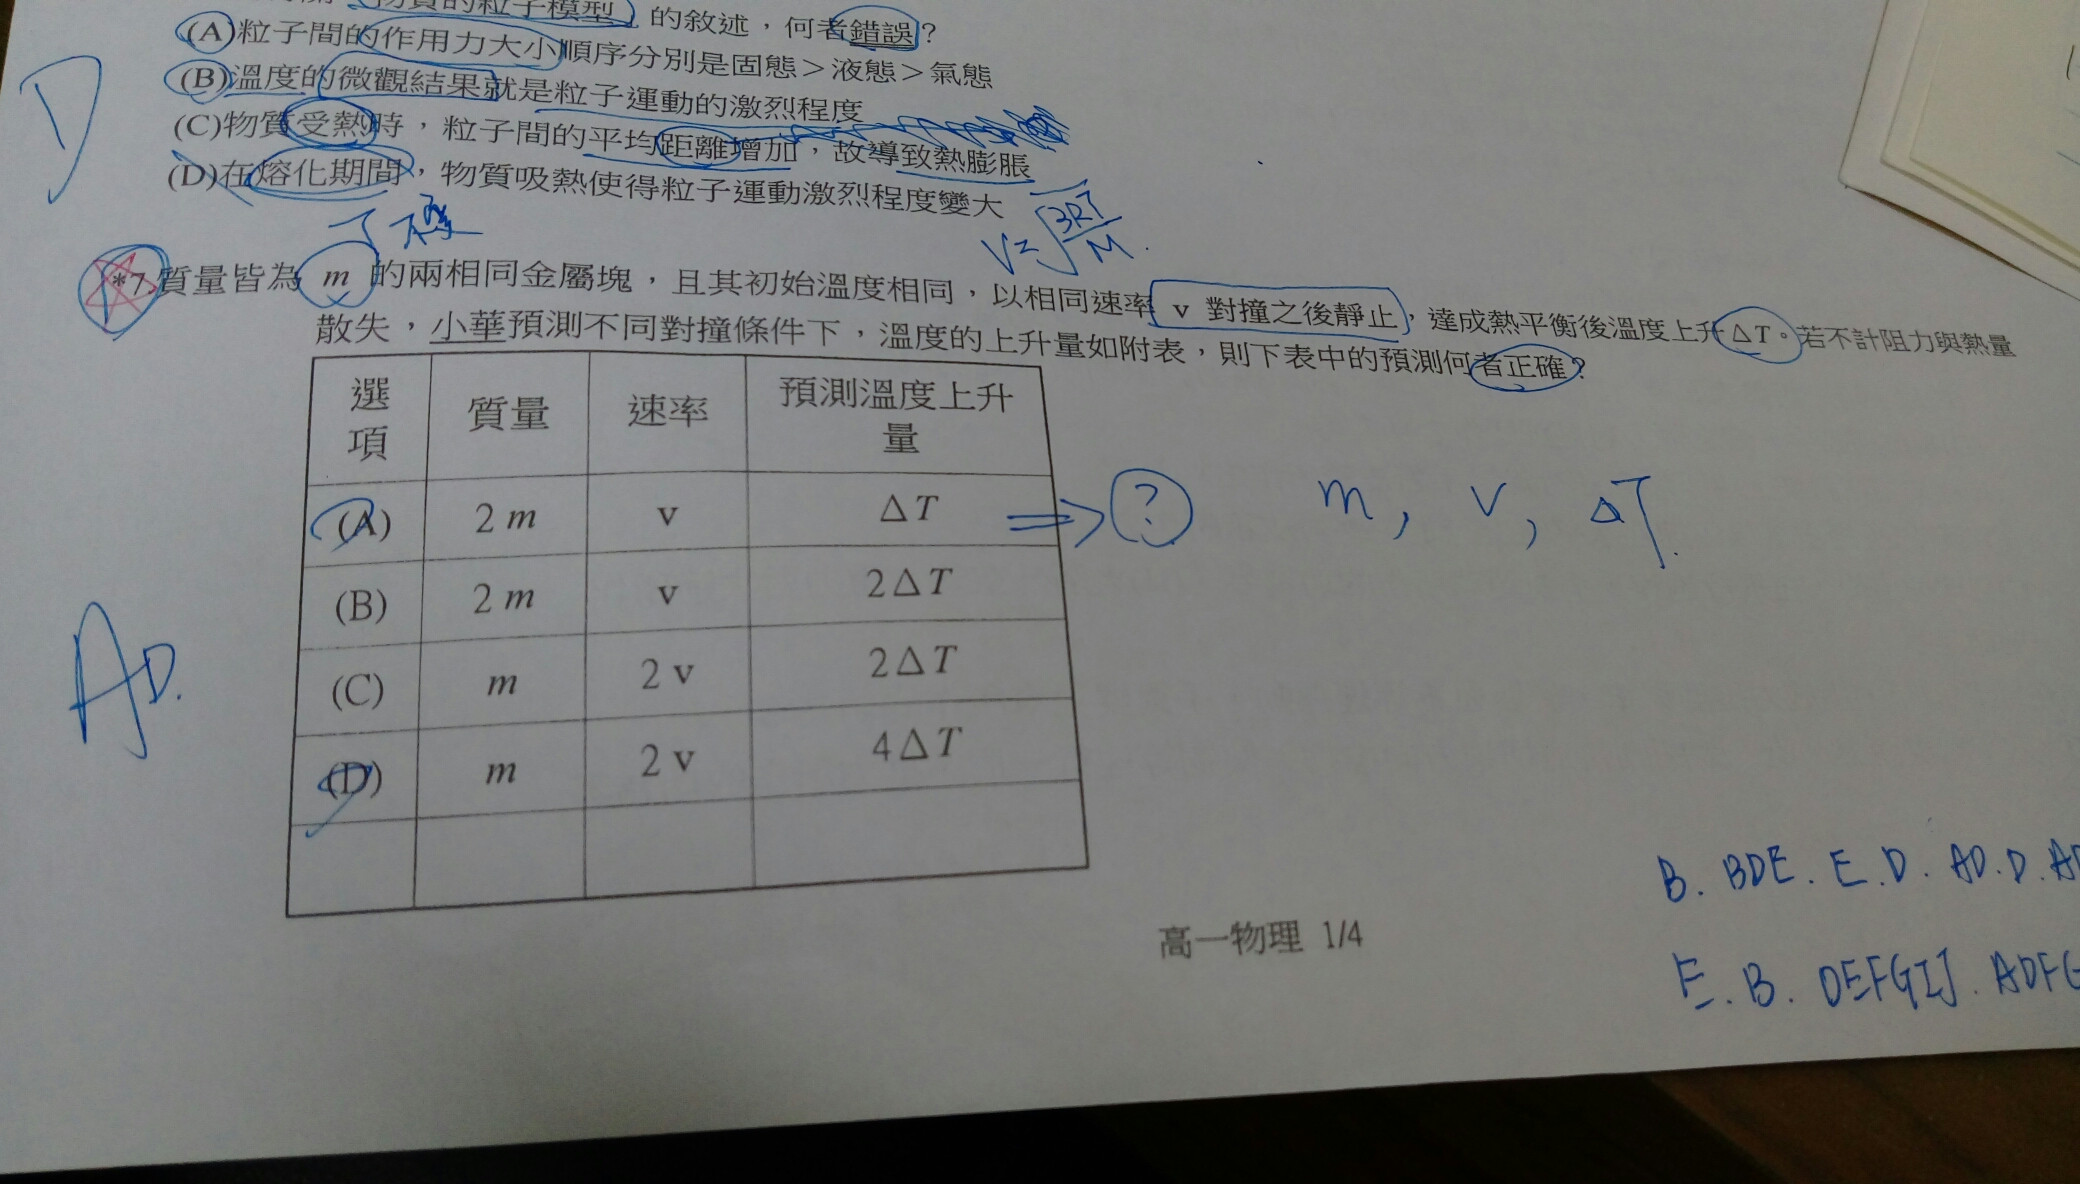 物質的粒子模型」的敘述，何者錯誤？
(A)粒子間的作用力大小順序分別是固態＞液態＞氣態
(B)溫度的微觀結果就是粒子運動的激烈程度
(C)物質受熱時，粒子間的平均距離增加，故導致熱膨脹
(D)在熔化期間，物質吸熱使得粒子運動激烈程度變大
D
V=√3RT/M
*7.質量皆為 m 的兩相同金屬塊，且其初始溫度相同，以相同速率 v 對撞之後靜止，達成熱平衡後溫度上升ΔT。若不計阻力與熱量
散失，小華預測不同對撞條件下，溫度的上升量如附表，則下表中的預測何者正確？
選項 質量 速率 預測溫度上升量
(A) 2 m v ΔT ⇒ ? m, v, ΔT.
(B) 2 m v 2ΔT
(C) m 2 v 2ΔT
(D) m 2 v 4ΔT
AD.
B. BDE. E. D. AD. D. AD
高一物理 1/4
E. B. DEFGIJ. ADFG